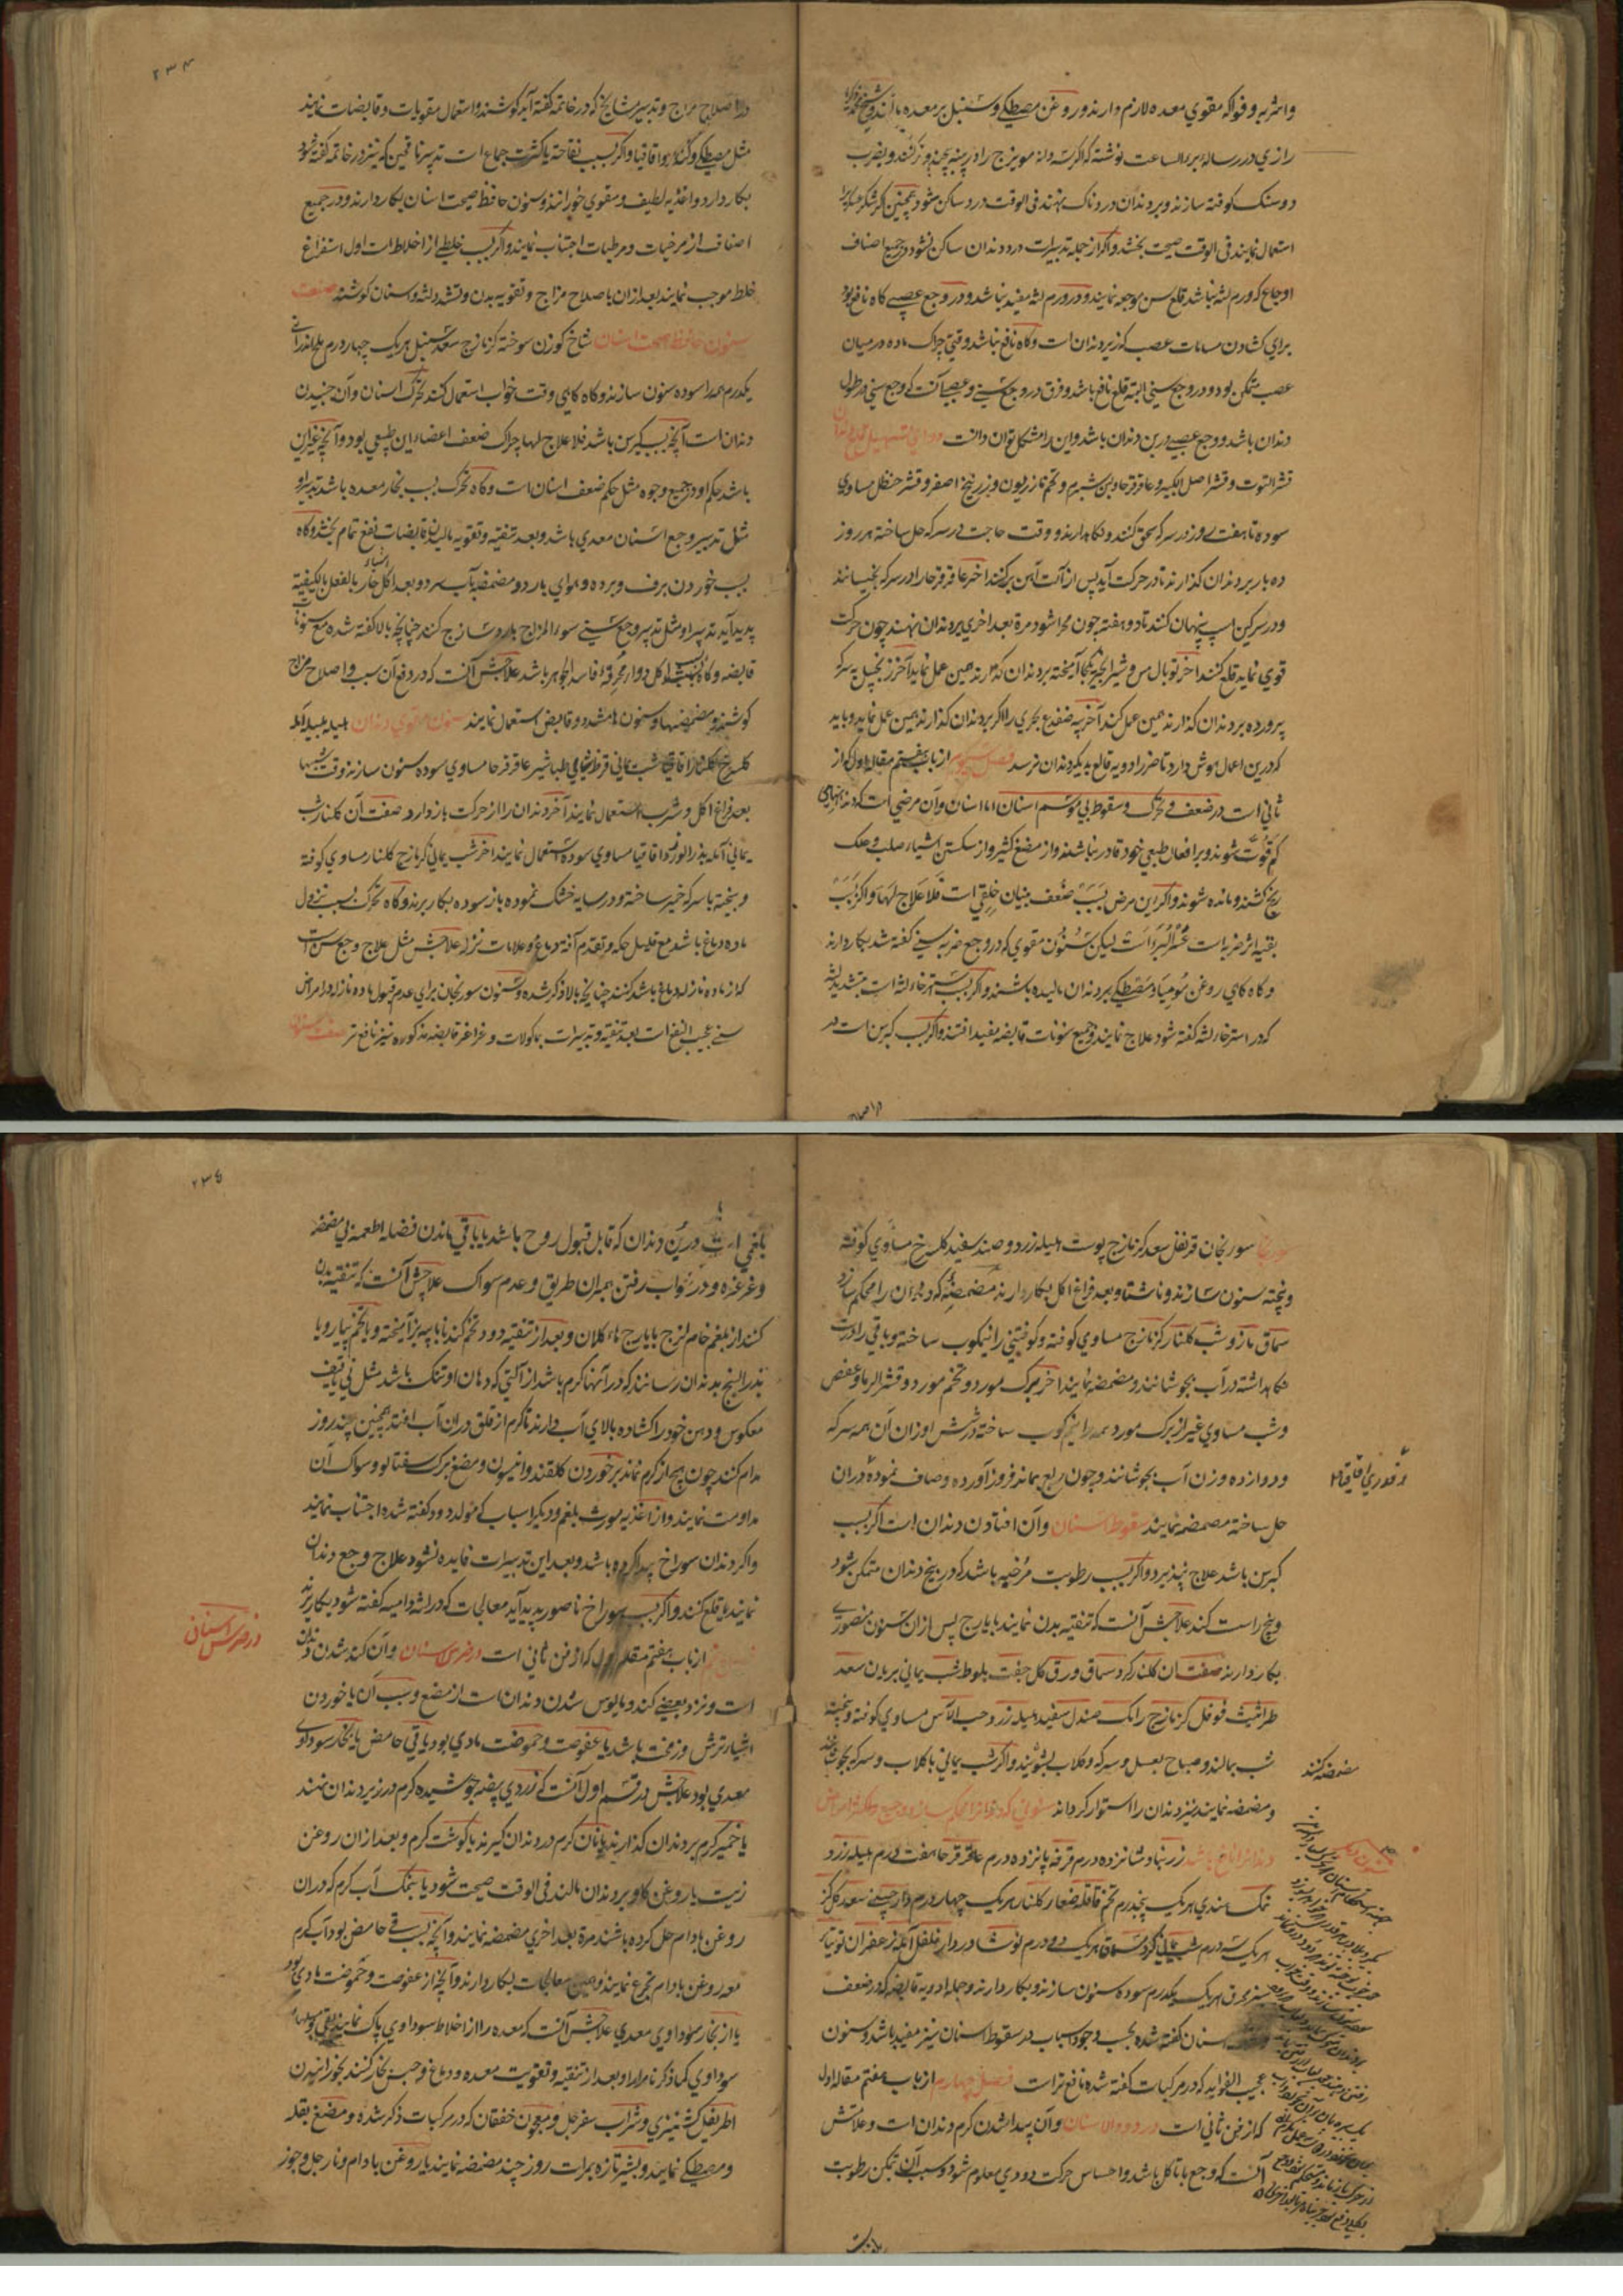 واشربه و فواکه مقوي معده لازم دارند و روغن مصطکي و سنبل بر معده
رازي در رساله برء الساعت نوشته که اگر سه دانه مویزج را در پنبه پیچند و
دو سنک کوفته سازند و بر دندان دردناک نهند في الوقت درد ساکن شود همچنین اگر
استعمال نمایند في الوقت صحت بخشد و اگر از جمله تدبیرات درد دندان ساکن نشود در جمیع اصناف
اوجاع که ورم لثه نباشد قلع سن موجعه نمایند و در ورم لثه مفید نباشد و در وجع عصبي کاه نافع بود
براي کشادن مسامات عصب که زیر دندان است و کاه نافع نباشد وقتي چراک ماده در میان
عصب متمکن بود و در وجع سني البته قلع نافع باشد و فرق در وجع سني و عصبي آنست که وجع سني در طول
دندان باشد و وجع عصبي در بن دندان باشد و این را مشکل توان دانست دواي تسهیل قلع دندان
قشر التوت و قشر اصل الکبر و عاقرقرحا و بن شبرم و تخم مازریون و زرنیخ اصفر و قشر حنظل مساوي
سوده تا هفت روز در سرکه سحق کنند و نکاه دارند و وقت حاجت در سرکه حل ساخته هر روز
ده بار بر دندان کذارند تا در حرکت آید پس از آلت آهن برکنند اخر عاقرقرحا را در سرکه بخیسانند
و در سرکین اسپ پنهان کنند تا دو هفته چون مهرا شود مرة بعد اخري بر دندان نهند چون حرکت
قوي نماید قلع کنند اخر توبال مس و شیر انجیر یکجا آمیخته بر دندان کذارند همین عمل نماید آخر زنجبیل به سرکه
پرورده بر دندان کذارند همین عمل کند آخر پیه ضفدع بحري را اکر بر دندان کذارند همین عمل نماید و باید
که درین اعمال هوش دارد تا ضرر ادویه قالع به دیکر دندان نرسد فصل سیوم از باب هفتم مقاله اول که از
ثاني است در ضعف و تحرک و سقوط بي موسم اسنان اما اسنان و آن مرضي است که دندانها
کم قوت شوند و بر افعال طبعي خود قادر نباشند و از مضغ کثیر و از سکستن اشیاء صلب و علک
رنج کشند و مانده شوند و اکر این مرض بسبب ضعف بنیان خلقي است فلا علاج لها و اکر بسبب
بقیه اثر ضربات است عسر البر است لیکن سنون مقوي که در وجع ضربه سني کفته شد بکار دارند
و کاه کاهي روغن مومیا و مصطکي بر دندان مالیده باشند و اکر بسبب استرخاء لثه است تشدید لثه
که در استرخاء لثه کفته شود علاج نمایند و جمیع سنونات قابضه مفید افتند و اکر بسبب کبر سن است در
در اصلاح
۲۳۴
در اصلاح مزاج و تدبیر مشایخ که در خاتمه کفته آید کوشند و استعمال مقویات و قابضات نمایند
مثل مصطکي و کندر و اقاقیا و اکر بسبب نقاحت یا کثرت جماع است تدبیر ناقهین که نیز در خاتمه کفته شود
بکار دارد و اغذیه لطیف و مقوي خورانند و سنون حافظ صحت اسنان بکار دارند و در جمیع
اصناف از مرخیات و مرطبات اجتناب نمایند و اکر بسبب خلطي از اخلاط است اول استفراغ
خلط موجب نمایند بعد ازان باصلاح مزاج و تقویه بدن و تشدد لثه و سنان کوشند صفت
سنون حافظ صحت اسنان شاخ کوزن سوخته کزمازج سعد سنبل هر یک چهار درم ملح اندراني
یکدرم همه را سوده سنون سازند و کاه کاهي وقت خواب استعمال کنند تحرک اسنان و آن جنبیدن
دندان است آنچه بسبب کبر سن باشد فلا علاج لها چراک ضعف اعضاء این طبعي بود و آنچه غیر این
باشد حکم او در جمیع وجوه مثل حکم ضعف اسنان است و کاه تحرک بسبب بخار معده باشد تدبیر او
مثل تدبیر وجع اسنان معدي باشد و بعد تنقیه و تقویه مالیدن قابضات نفع تمام بخشد و کاه
بسبب خوردن برف و برده و هواي بارد و مضمضه بآب سرد و بعد اکل اشیاء حار بالفعل بالکیفیته
پدید آید تدبیر او مثل تدبیر وجع سني سوء المزاج بارد ساذج کنند چنانچه بالا کفته شده مع سنونات
قابضه و کاه بسبب اکل دوا محرقه فاسد الجوهر باشد علاجش آنست که در دفع آن سبب و اصلاح مزاج
کوشند و مضمضها و سنون ها مشدد و قابض استعمال نمایند سنون مقوي دندان هلیله بلیله آمله
کلسرخ کلنار اقاقیا شب یماني قرظ شامي طباشیر عاقرقرحا مساوي سوده سنون سازند وقت شبها
بعد فراغ اکل و شرب استعمال نمایند آخر دندان را از حرکت باز دارد صفت آن کلنار شب
یماني آمله بذر الورد اقاقیا مساوي سوده استعمال نمایند اخر شب یماني کزمازج کلنار مساوي کوفته
و بیخته با سرکه خمیر ساخته و در سایه خشک نموده باز سوده بکار برند و کاه تحرک بسبب نزول
ماده دماغ باشد مع قلیل حکه و تقدم آفته دماغ و علامات نزله علاجش مثل علاج وجع سن است
که از ماده نازله دماغ باشد کنند چنانچه بالا ذکر شده و سنون سورنجان براي عدم قبول ماده نازله و امراض
سني عجیب النفع است بعد تنقیه و تدبیرات بماکولات و غراغر قابضه مذکوره نیز نافع تر صفت سنون
سورنجان سورنجان قرنفل سعد کزمازج پوست هلیله زرد و صندل سفید کلسرخ مساوي کوفته
و بیخته سنون سازند و ناشتا و بعد فراغ اکل بکار دارند مضمضه که دندان را محکم سازد
سماق مازو شب کلنار کزمازج مساوي کوفته و کوفتني را نیمکوب ساخته و باقي را درست
نکاه داشته در آب بجوشانند و مضمضه نمایند اخر برک مورد و تخم مورد و قشر الرمان و عفص
و شب مساوي غیر از برک مورد همه را نیم کوب ساخته در شش اوزان آن همه سرکه
و دوازده وزن آب بجوشانند و چون ربع بماند فرود آورده و صاف نموده دران
و قدري اقاقیا
حل ساخته مضمضه نمایند سقوط اسنان و آن افتادن دندان است اکر بسبب
کبر سن باشد علاج نپذیرد و اکر بسبب رطوبت مرخیه باشد که در بیخ دندان متمکن شود
و بیخ را سست کند علاجش آنست که تنقیه بدن نمایند بایارج پس ازان سنون منصوري
بکار دارند صفت آن کلنار کرد سماق ورق کل جفت بلوط شب یماني بریان سعد
طراثیث فوفل کزمازج رامک صندل سفید هلیله زرد و حب الآس مساوي کوفته و بیخته
شب بمالند و صباح بعسل و سرکه و کلاب بشویند و اکر شب یماني با کلاب و سرکه بجوشانند
مضمضه کنند
و مضمضه نمایند نیز دندان را استوار کرداند سنوني که دندانرا محکم سازد و جمیع و اکثر امراض
دندانرا نافع باشد زرنباد شانزده درم قرفه پانزده درم عاقرقرحا هفت درم هلیله زرد
نمک هندي هر یک پنجدرم تخم قاقله صغار کلنار هر یک چهار درم دارچیني سعد کل کز
هر یک سه درم شب یماني کرد سماق هر یک دو درم نوشادر دار فلفل آمله زعفران توتیا
سبز محرق هر یک یکدرم سوده سنون سازند و بکار دارند و جمله ادویه قابضه که در ضعف
اسنان کفته شده بحسب وجود اسباب در سقوط اسنان نیز مفید باشد و سنون
عجیب الفواید که در مرکبات کفته شده نافع تر است فصل چهارم از باب هفتم مقاله اول
که از فن ثاني است در دود الاسنان و آن پیدا شدن کرم دندان است و علامتش
آنست که وجع با تاکل باشد و احساس حرکت دودي معلوم شود و سبب آن تمکن رطوبت
۲۳۵
بلغمي است در بن دندان که قابل قبول روح باشد یا باقي ماندن فضله اطعمه بي مضمضه
و غرغره و در خواب رفتن بهمان طریق و عدم سواک علاجش آنست که تنقیه بدن
کنند از بلغم خام لزج بایارج هاء کلان و بعد از تنقیه دود تخم کندنا با پیه بز آمیخته و یا تخم پیاز و یا
بذر البنج بدندان رسانند که در آنها کرم باشد از آلتي که دهان او تنک باشد مثل ني یا قیف
معکوس و دهن خود را کشاده بالاي آب دارند تا کرم از قلق دران آب افتد همچنین چند روز
مدام کنند چون هیچ از کرم نماند بر خوردن کلقند و انیسون و مضغ برک سفتالو و سواک آن
مداومت نمایند و از اغذیه مورث بلغم و دیکر اسباب که مولد دود کفته شده اجتناب نمایند
و اکر دندان سوراخ پیدا کرده باشد و بعد این تدبیرات فایده نشود علاج وجع دندان
نمایند یا قلع کنند و اکر بسبب سوراخ ناصور پدید آید معالجات که در لثه دامیه کفته شود بکار برند
از باب هفتم مقاله اول که از فن ثاني است در ضرس اسنان و آن کند شدن دندان
در ضرس اسنان
است و نزد بعضي کند و مایوس شدن دندان است از مضغ و سبب آن یا خوردن
اشیاء ترش و زمخت باشد یا عفوصت و حموضت مادي بود یا قي حامض یا بخار سوداوي
معدي بود علاجش در قسم اول آنست که زردي بیضه جوشیده کرم در زیر دندان نهند
یا خمیر کرم بر دندان کذارند یا نان کرم در دندان کیرند یا کوشت کرم و بعد ازان روغن
زیت یا روغن کاو بر دندان مالند في الوقت صحت شود یا بنمک آب کرم که دران
روغن بادام حل کرده باشند مرة بعد اخري مضمضه نمایند و آنچه بسبب قي حامض بود آب کرم
معه روغن بادام تجرع نمایند و همین معالجات بکار دارند و آنچه از عفوصت و حموضت مادي بود
یا از بخار سوداوي معدي علاجش آنست که معده را از اخلاط سوداوي پاک نمایند
سوداوي کما ذکرنا مرارا و بعد از تنقیه و تقویت معده و دماغ و حبس بخار کنند بخورانیدن
اطریفل کشنیزي و شراب سفرجل و معجون خفقان که در مرکبات ذکر شده و مضغ بقله
و مصطکي نمایند و بشیر تازه بمرات روز چند مضمضه نمایند یا روغن بادام و نارجیل و جوز